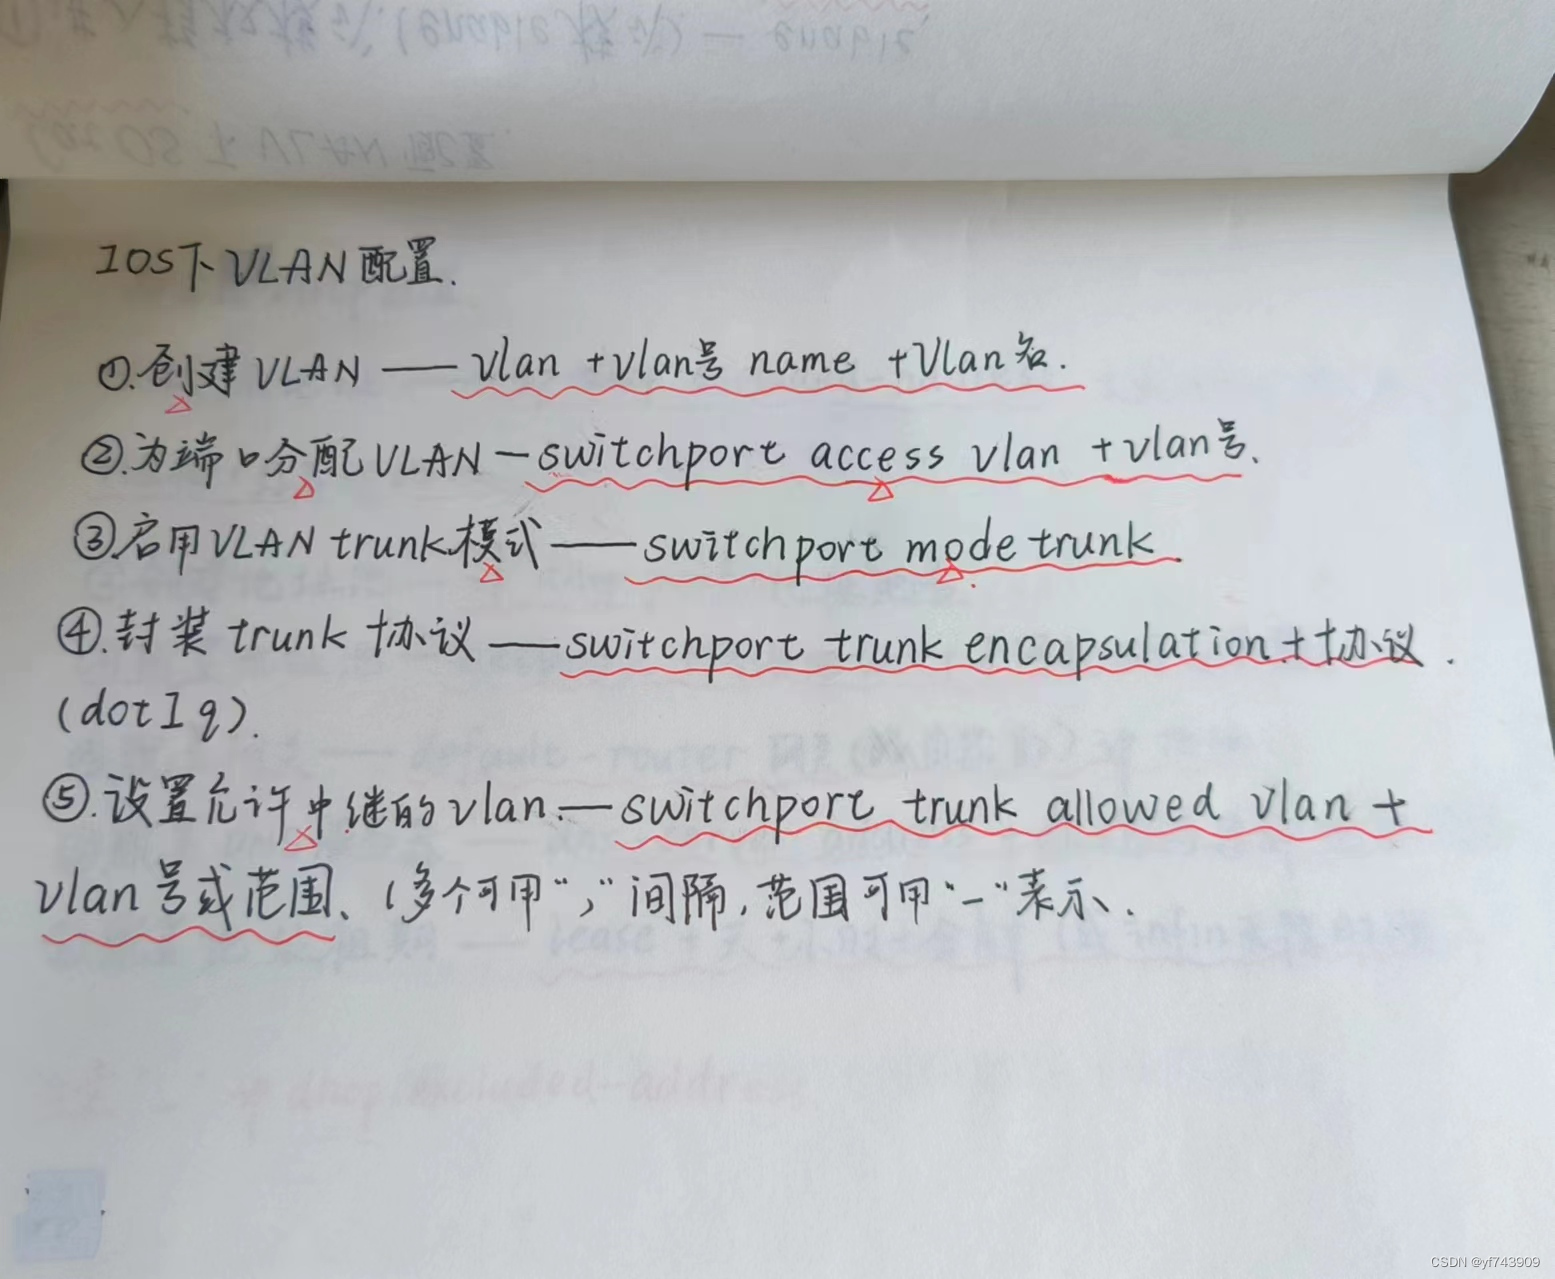 IOS下VLAN配置.
①.创建VLAN——vlan +vlan号 name +Vlan名.
②.为端口分配VLAN—switchport access vlan +vlan号.
③启用VLAN trunk模式——switchport mode trunk
④.封装trunk协议——switchport trunk encapsulation+协议.
(dot1q).
⑤.设置允许中继的vlan.—switchport trunk allowed vlan +
vlan号或范围、(多个可用“,”间隔,范围可用“-”表示、.
CSDN @yf743909